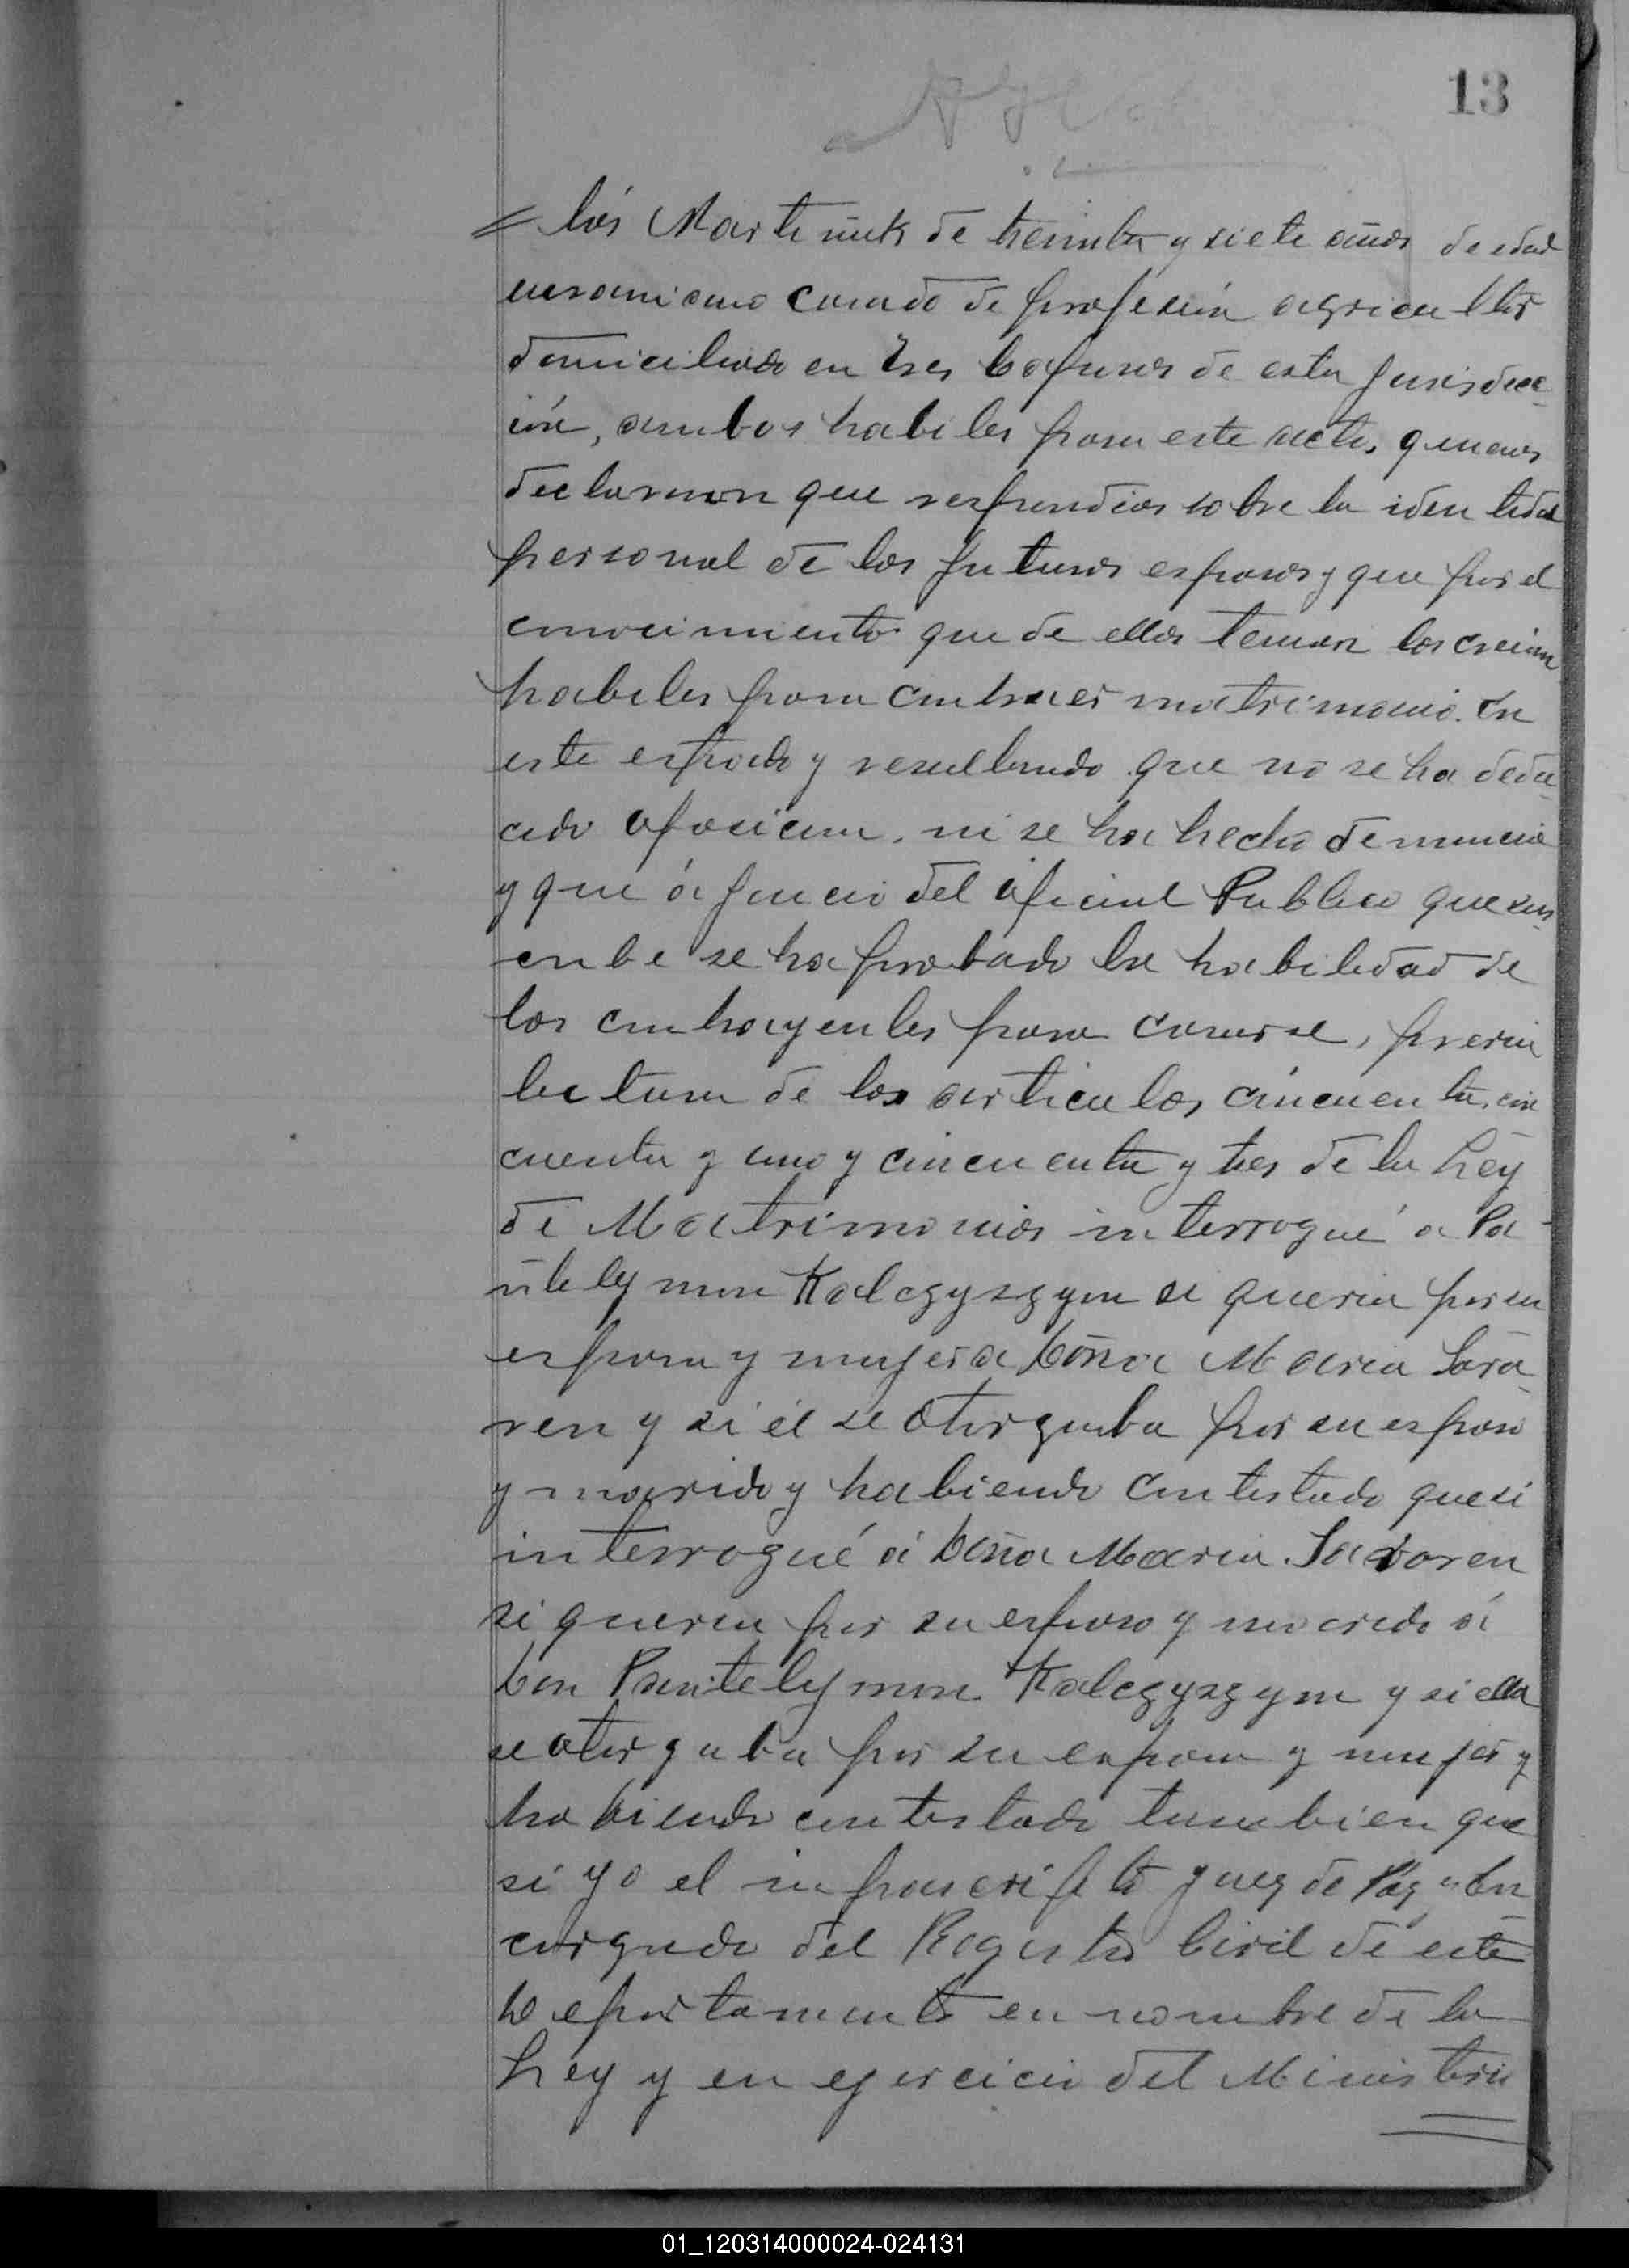 13
lós Martiniuk de treinta y siete años de edad
casado de profesión agricultor
domiciliado en Tres Capones de esta Jurisdicc
ión, ambos habiles para este acto, quienes
declararon que respondian sobre la identidad
personal de los futuros esposos y que por el
conocimiento que de ellos tenian los creian
habiles para contraer matrimonio. En
este estado y resultando que no se ha dedu
cido oposicion, ni se ha hecho denuncia
y que á juicio del oficial Publico que sus
cribe se ha probado la habilidad de
los contrayentes para casarse, previa
lectura de los articulos cincuenta, cin
cuenta y uno y cincuenta y tres de la Ley
de Matrimonios interrogué a Pa
ntelymon Kalczyszyn si queria por su
esposa y mujer a Doña Maria Sava
ren y si él se otorgaba por su esposo
y marido y habiendo contestado que sí
interrogué á Doña Maria Savaren
si queria por su esposo y marido á
Don Pantelymon Kalczyszyn y si ella
se otorgaba por su esposa y mujer y
habiendo contestado tambien que
sí yo el infrascripto Juez de Paz y En
cargado del Registro Civil de este
Departamento en nombre de la
Ley y en ejercicio del Ministerio
01_120314000024-024131